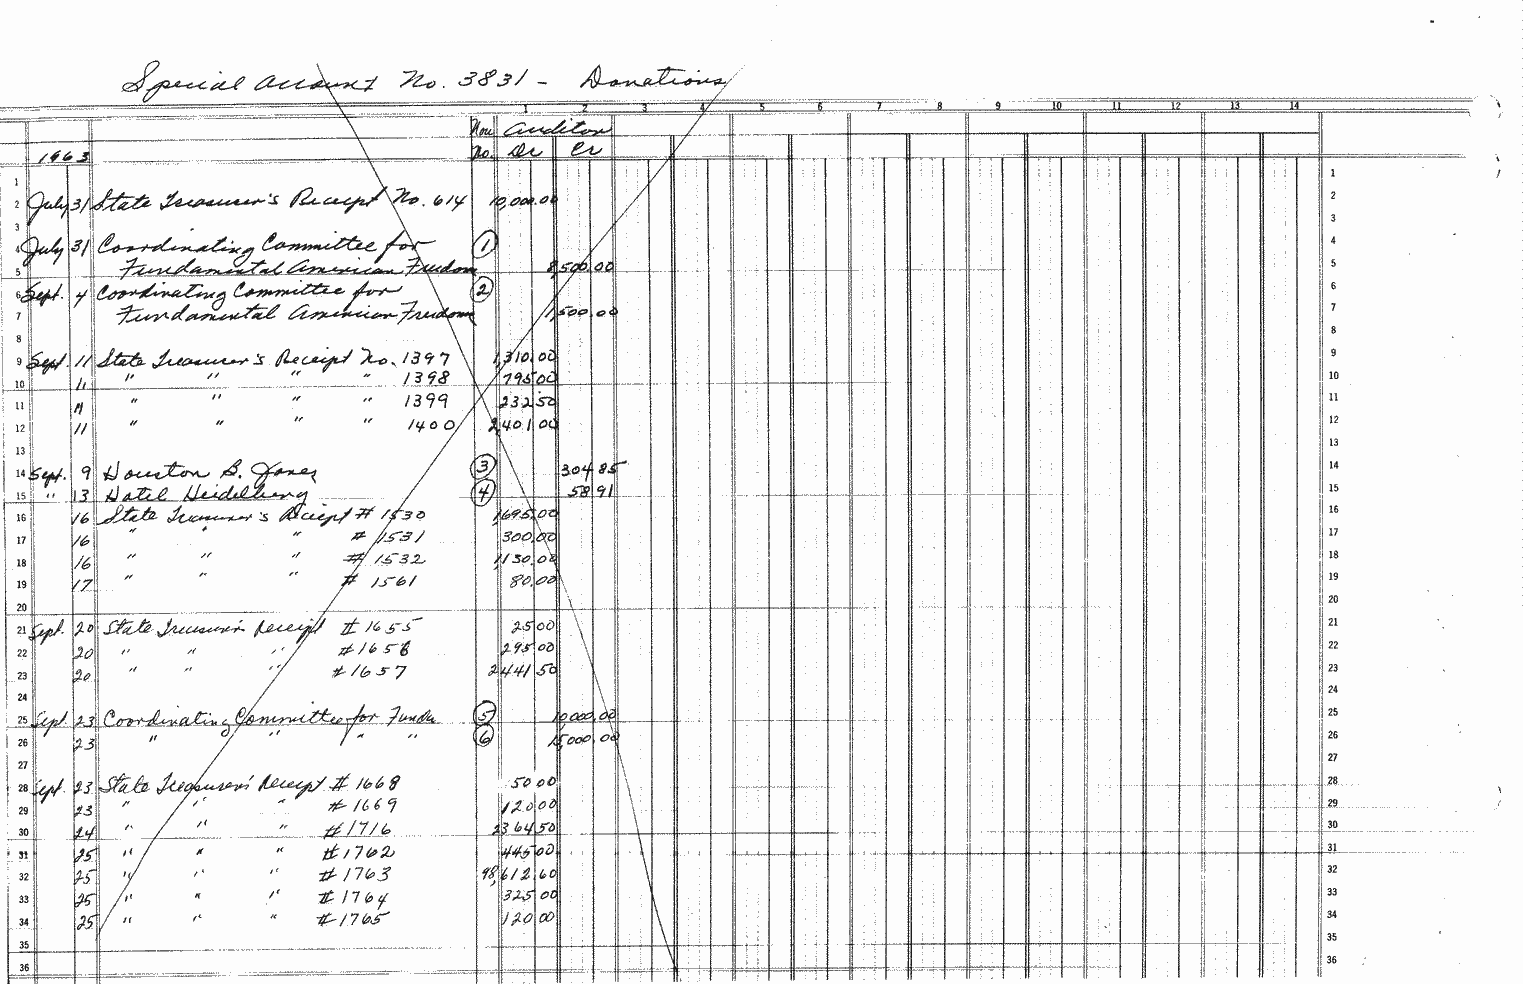 Special Account No. 3831 - Donations
1 2 3 4 5 6 7 8 9 10 11 12 13 14
Auditor
1963 No. Dr Cr
1 1
2 July 31 State Treasurer's Receipt No. 614 10,000.00 2
3 3
4 July 31 Coordinating Committee for 1 4
5 Fundamental American Freedom 8,500.00 5
6 Sept. 4 Coordinating Committee for 2 6
7 Fundamental American Freedom 1,500.00 7
8 8
9 Sept. 11 State Treasurer's Receipt No. 1397 1,310.00 9
10 11 " " " " 1398 795.00 10
11 11 " " " " 1399 232.50 11
12 11 " " " " 1400 2,401.00 12
13 13
14 Sept. 9 Houston S. Jones 3 304.85 14
15 " 13 Hotel Heidelberg 4 58.91 15
16 16 State Treasurer's Receipt # 1530 1,695.00 16
17 16 " " " # 1531 300.00 17
18 16 " " " # 1532 1,150.00 18
19 17 " " " # 1561 80.00 19
20 20
21 Sept. 20 State Treasurer's Receipt # 1655 25.00 21
22 20 " " " # 1656 295.00 22
23 20 " " " # 1657 2441.50 23
24 24
25 Sept. 23 Coordinating Committee for Funda 5 10,000.00 25
26 23 " " " " 6 15,000.00 26
27 27
28 Sept. 23 State Treasurer's Receipt # 1668 50.00 28
29 23 " " " # 1669 120.00 29
30 24 " " " # 1716 2364.50 30
31 25 " " " # 1762 445.00 31
32 25 " " " # 1763 98,612.60 32
33 25 " " " # 1764 325.00 33
34 25 " " " # 1765 120.00 34
35 35
36 36